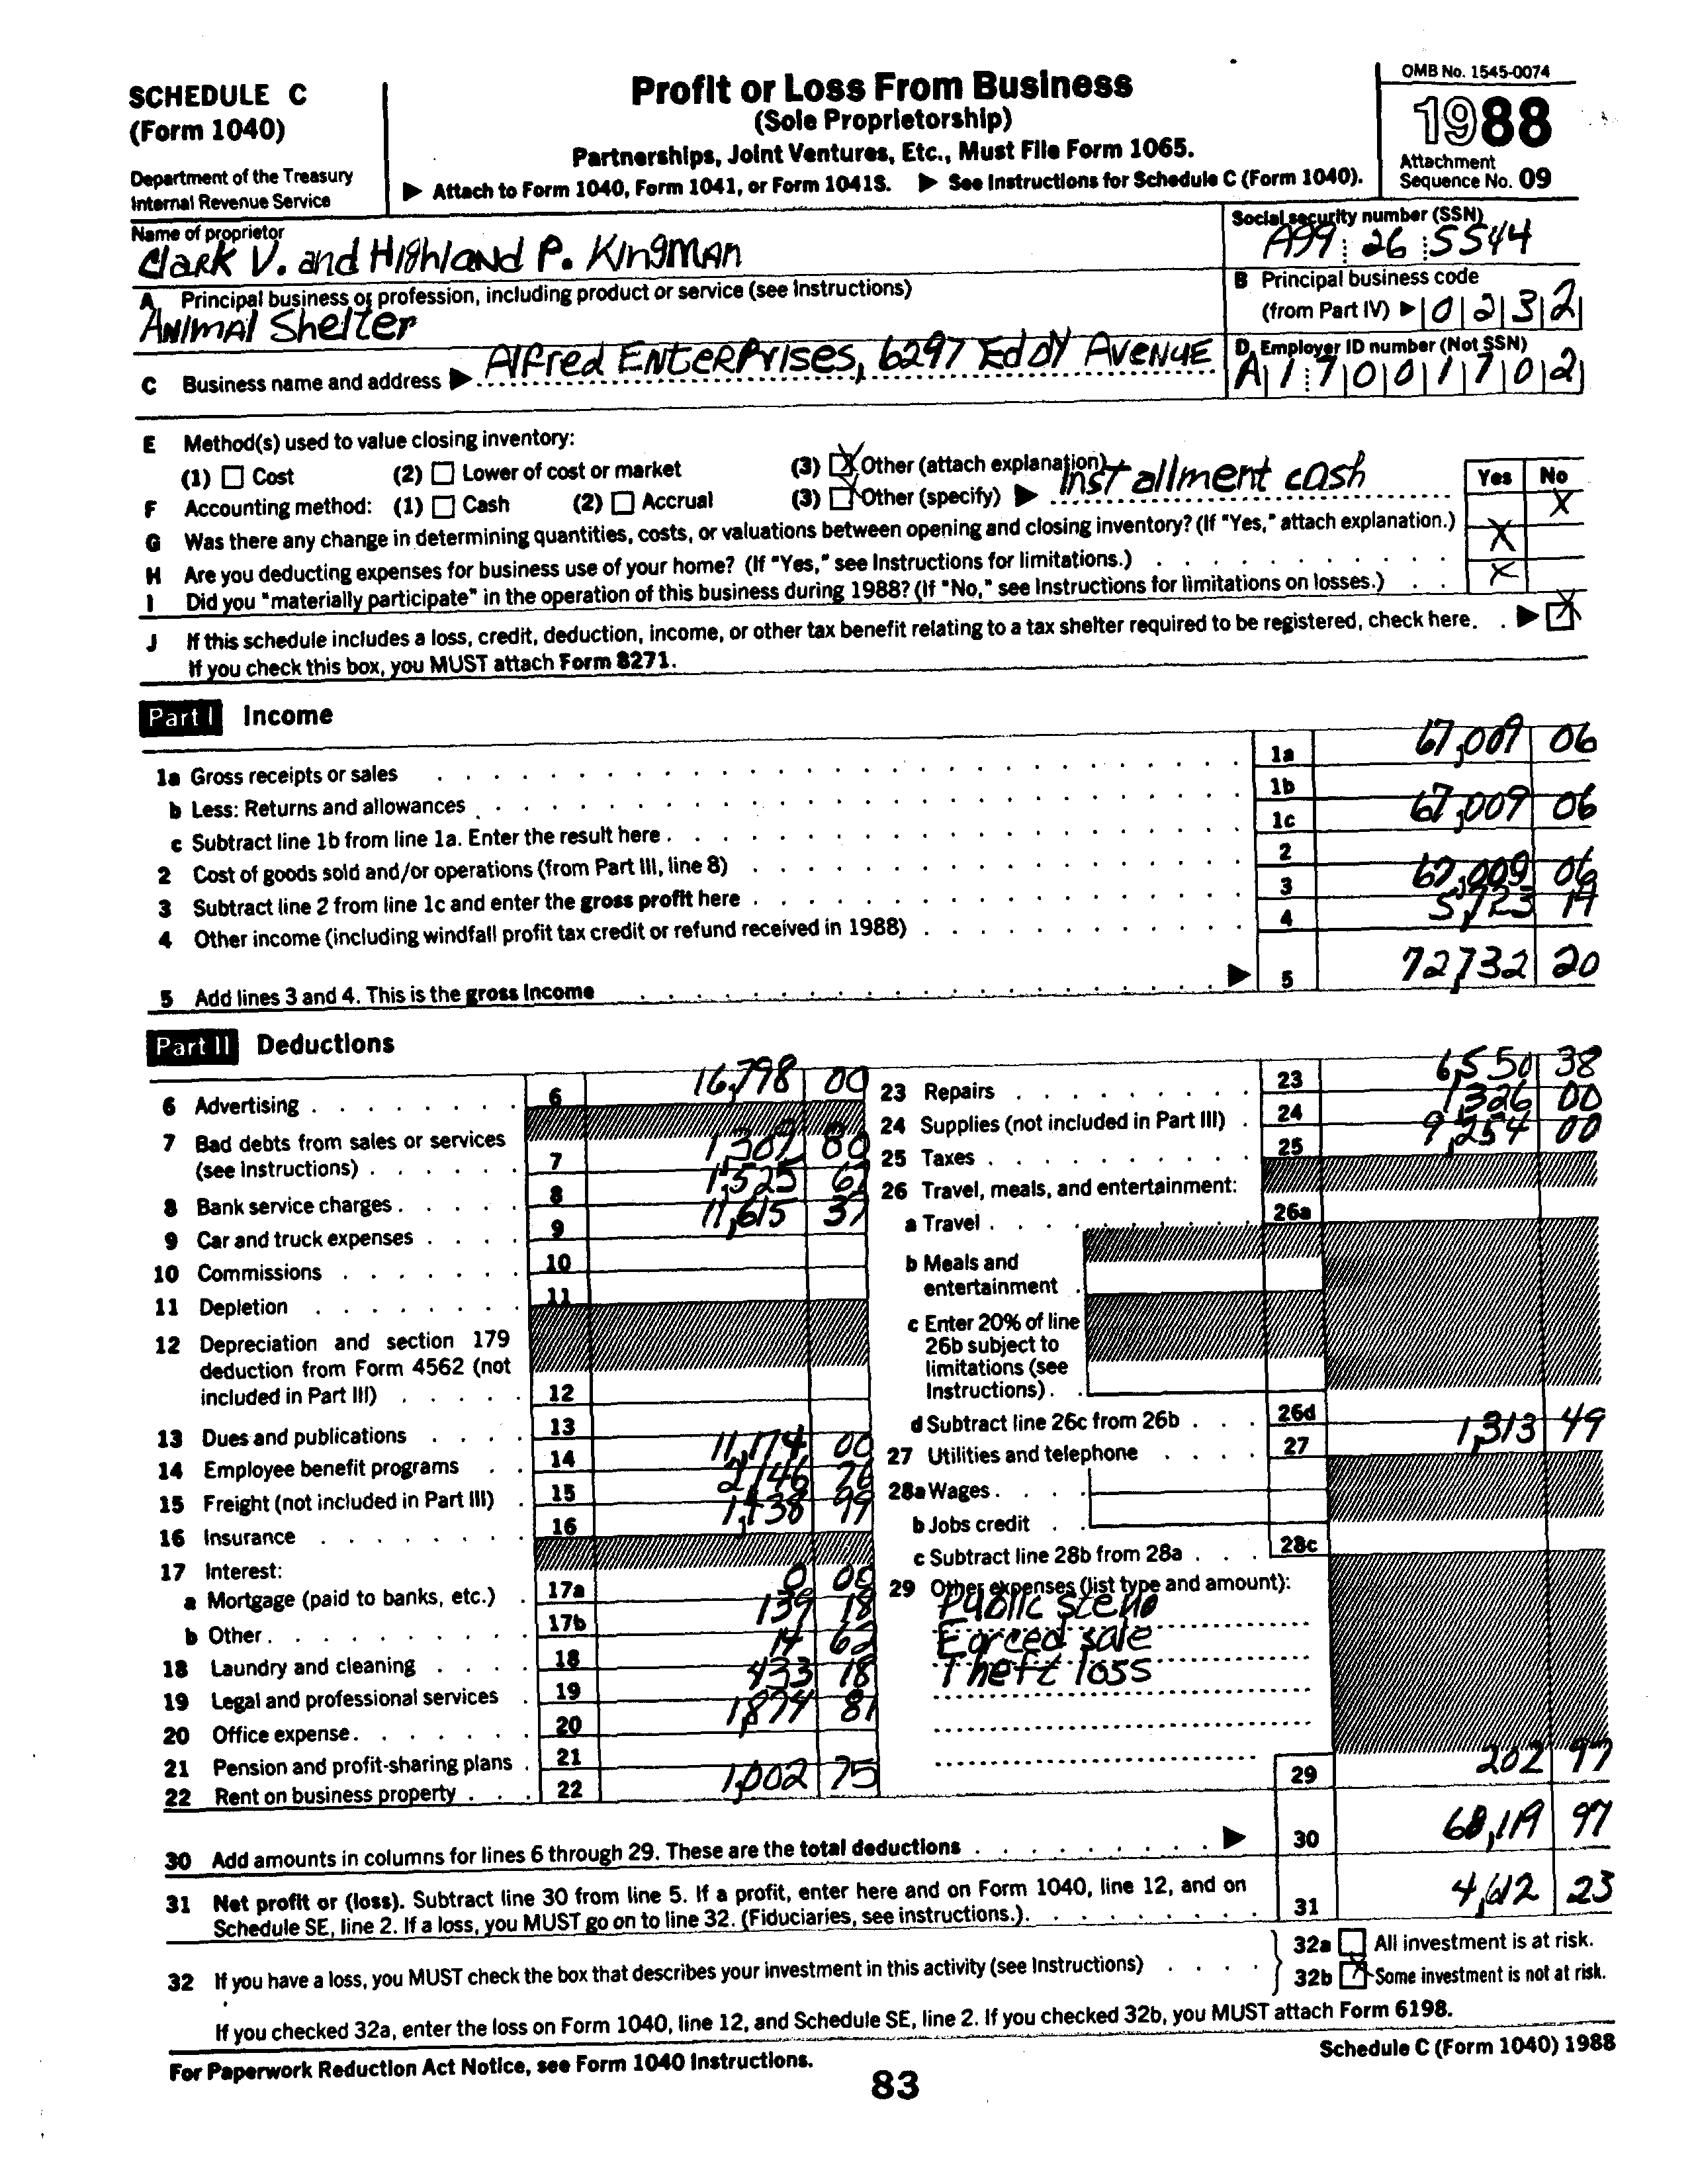 SCHEDULE C
(Form 1040)
Department of the Treasury
Internal Revenue Service
Profit or Loss From Business
(Sole Proprietorship)
Partnerships, Joint Ventures, Etc., Must File Form 1065.
▶ Attach to Form 1040, Form 1041, or Form 1041S. ▶ See Instructions for Schedule C (Form 1040).
OMB No. 1545-0074
1988
Attachment
Sequence No. 09
Name of proprietor
Clark V. and Highland P. Kingman
Social security number (SSN)
A99 26 5544
A Principal business or profession, including product or service (see Instructions)
Animal Shelter
B Principal business code
(from Part IV) ▶ 0 2 3 2
C Business name and address ▶ Alfred Enterprises, 6297 Eddy Avenue
D Employer ID number (Not SSN)
A 1 7 0 0 1 7 0 2
E Method(s) used to value closing inventory:
(1) Cost (2) Lower of cost or market (3) X Other (attach explanation)
F Accounting method: (1) Cash (2) Accrual (3) X Other (specify) ▶ Installment cash
Yes No
G Was there any change in determining quantities, costs, or valuations between opening and closing inventory? (If "Yes," attach explanation.) X
H Are you deducting expenses for business use of your home? (If "Yes," see Instructions for limitations.) X
I Did you "materially participate" in the operation of this business during 1988? (If "No," see Instructions for limitations on losses.) X
J If this schedule includes a loss, credit, deduction, income, or other tax benefit relating to a tax shelter required to be registered, check here. ▶ X
If you check this box, you MUST attach Form 8271.
Part I Income
1a Gross receipts or sales 1a 67,009 06
b Less: Returns and allowances 1b
c Subtract line 1b from line 1a. Enter the result here 1c 67,009 06
2 Cost of goods sold and/or operations (from Part III, line 8) 2
3 Subtract line 2 from line 1c and enter the gross profit here 3 67,009 06
4 Other income (including windfall profit tax credit or refund received in 1988) 4 5,723 14
5 Add lines 3 and 4. This is the gross income ▶ 5 72,732 20
Part II Deductions
6 Advertising 6 16,798 00
7 Bad debts from sales or services
(see Instructions) 7 1,307 80
8 Bank service charges 8 1,525 67
9 Car and truck expenses 9 11,615 37
10 Commissions 10
11 Depletion 11
12 Depreciation and section 179
deduction from Form 4562 (not
included in Part III) 12
13 Dues and publications 13
14 Employee benefit programs 14 11,174 00
15 Freight (not included in Part III) 15 2,146 76
16 Insurance 16 1,438 99
17 Interest:
a Mortgage (paid to banks, etc.) 17a 0 00
b Other 17b 139 18
18 Laundry and cleaning 18 14 62
19 Legal and professional services 19 433 18
20 Office expense 20 1,874 81
21 Pension and profit-sharing plans 21
22 Rent on business property 22 1,002 75
23 Repairs 23 6,550 38
24 Supplies (not included in Part III) 24 1,326 00
25 Taxes 25 9,254 00
26 Travel, meals, and entertainment:
a Travel 26a
b Meals and
entertainment
c Enter 20% of line
26b subject to
limitations (see
Instructions)
d Subtract line 26c from 26b 26d
27 Utilities and telephone 27 1,313 49
28a Wages
b Jobs credit
c Subtract line 28b from 28a 28c
29 Other expenses (list type and amount):
Public steno
Forced sale
Theft loss
29 202 97
30 Add amounts in columns for lines 6 through 29. These are the total deductions ▶ 30 68,119 97
31 Net profit or (loss). Subtract line 30 from line 5. If a profit, enter here and on Form 1040, line 12, and on
Schedule SE, line 2. If a loss, you MUST go on to line 32. (Fiduciaries, see instructions.) 31 4,612 23
32 If you have a loss, you MUST check the box that describes your investment in this activity (see Instructions)
32a All investment is at risk.
32b X Some investment is not at risk.
If you checked 32a, enter the loss on Form 1040, line 12, and Schedule SE, line 2. If you checked 32b, you MUST attach Form 6198.
For Paperwork Reduction Act Notice, see Form 1040 Instructions.
Schedule C (Form 1040) 1988
83